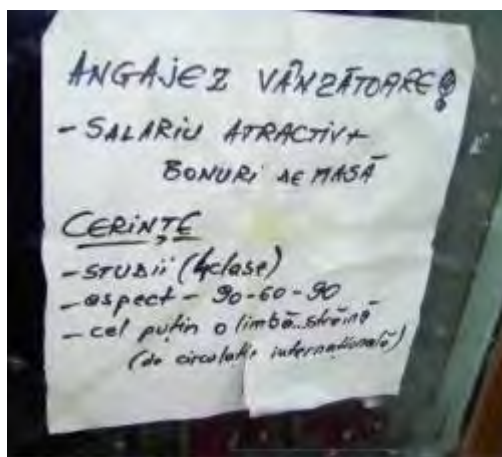 ANGAJEZ VÂNZĂTOARE!
- SALARIU ATRACTIV +
BONURI DE MASĂ
CERINȚE
- STUDII (4 clase)
- aspect - 90-60-90
- cel puțin o limbă..străină
(de circulație internațională)